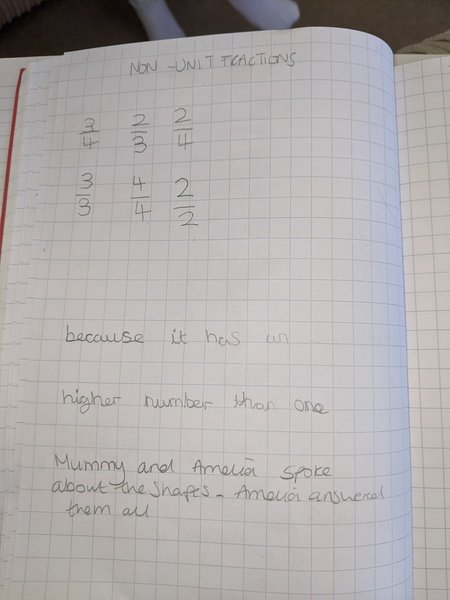 NON-UNIT FRACTIONS
3/4 2/3 2/4
3/3 4/4 2/2
because it has un
higher number than one
Mummy and Amelia spoke
about the shapes - Amelia answered
them all